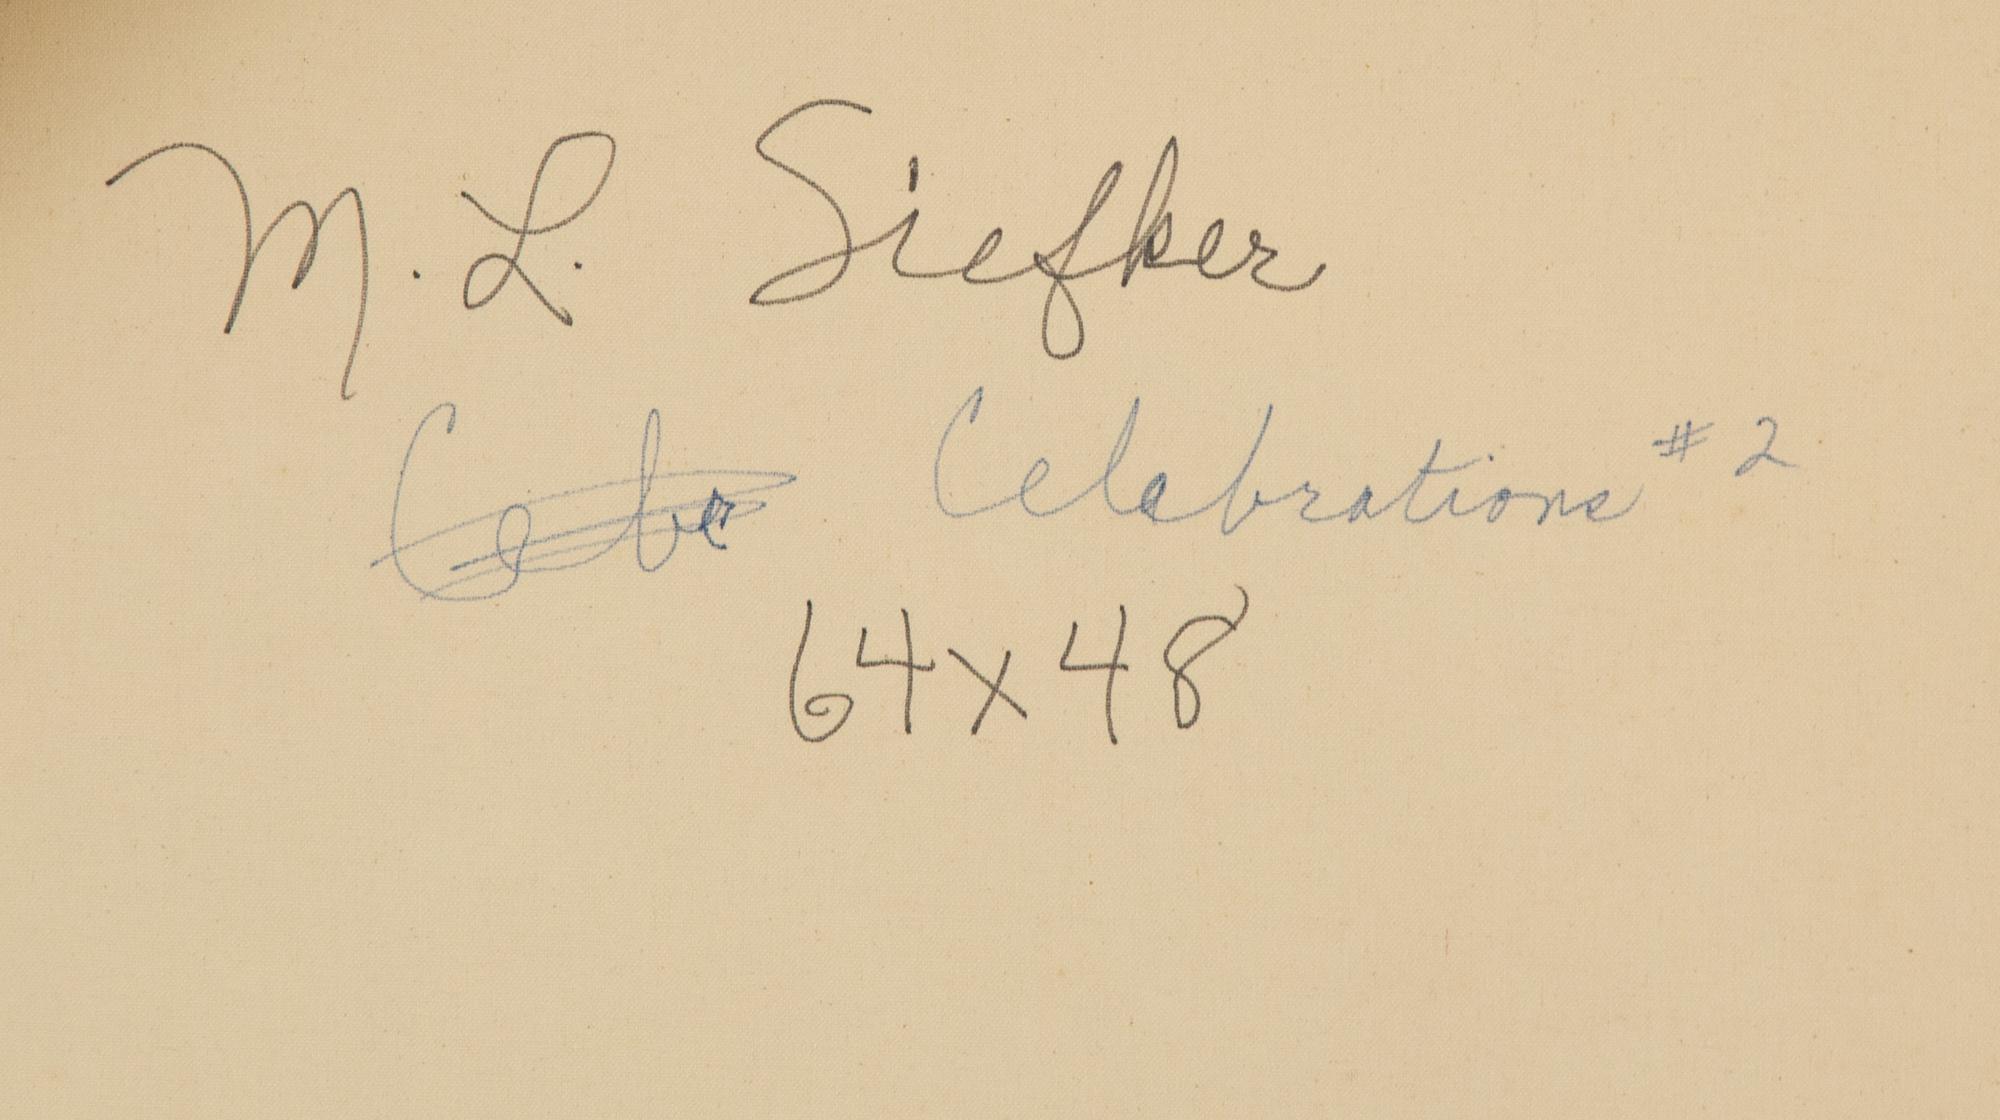 M. L. Siefker
Celebrations #2
64x48